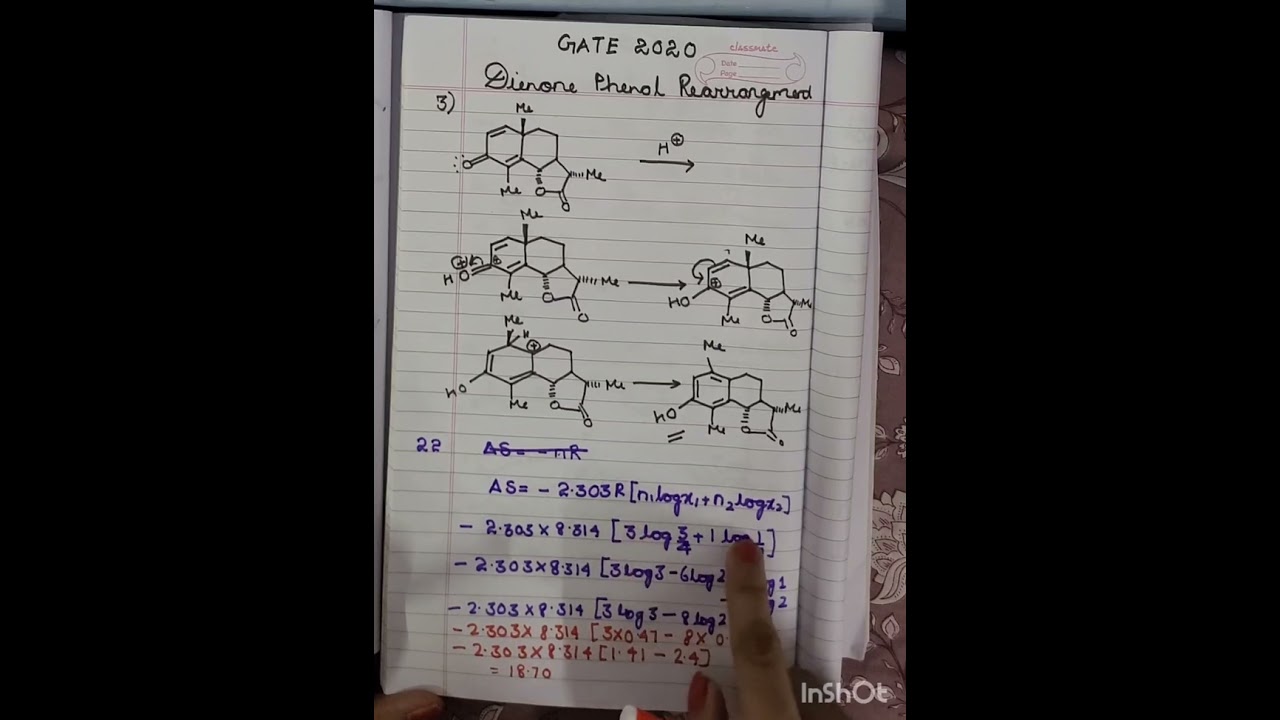 GATE 2020
classmate
Date
Page
Dienone Phenol Rearrangement
3)
Me
H⊕
O
Me
O
Me
O
Me
⊕
H
O
⊕
Me
O
Me
O
Me
HO
⊕
Me
O
Me
O
Me
H
⊕
HO
Me
O
Me
O
Me
HO
Me
O
Me
O
22
ΔS = -nR
ΔS = - 2.303R [n1logx1 + n2logx2]
- 2.303 × 8.314 [3 log 3/4 + 1 log 1
- 2.303 × 8.314 [3log3 - 6log2 g 1
g 2
- 2.303 × 8.314 [3log3 - 8log2
- 2.303 × 8.314 [3×0.47 - 8× 0.
- 2.303 × 8.314 [1.41 - 2.4]
= 18.70
InShOt